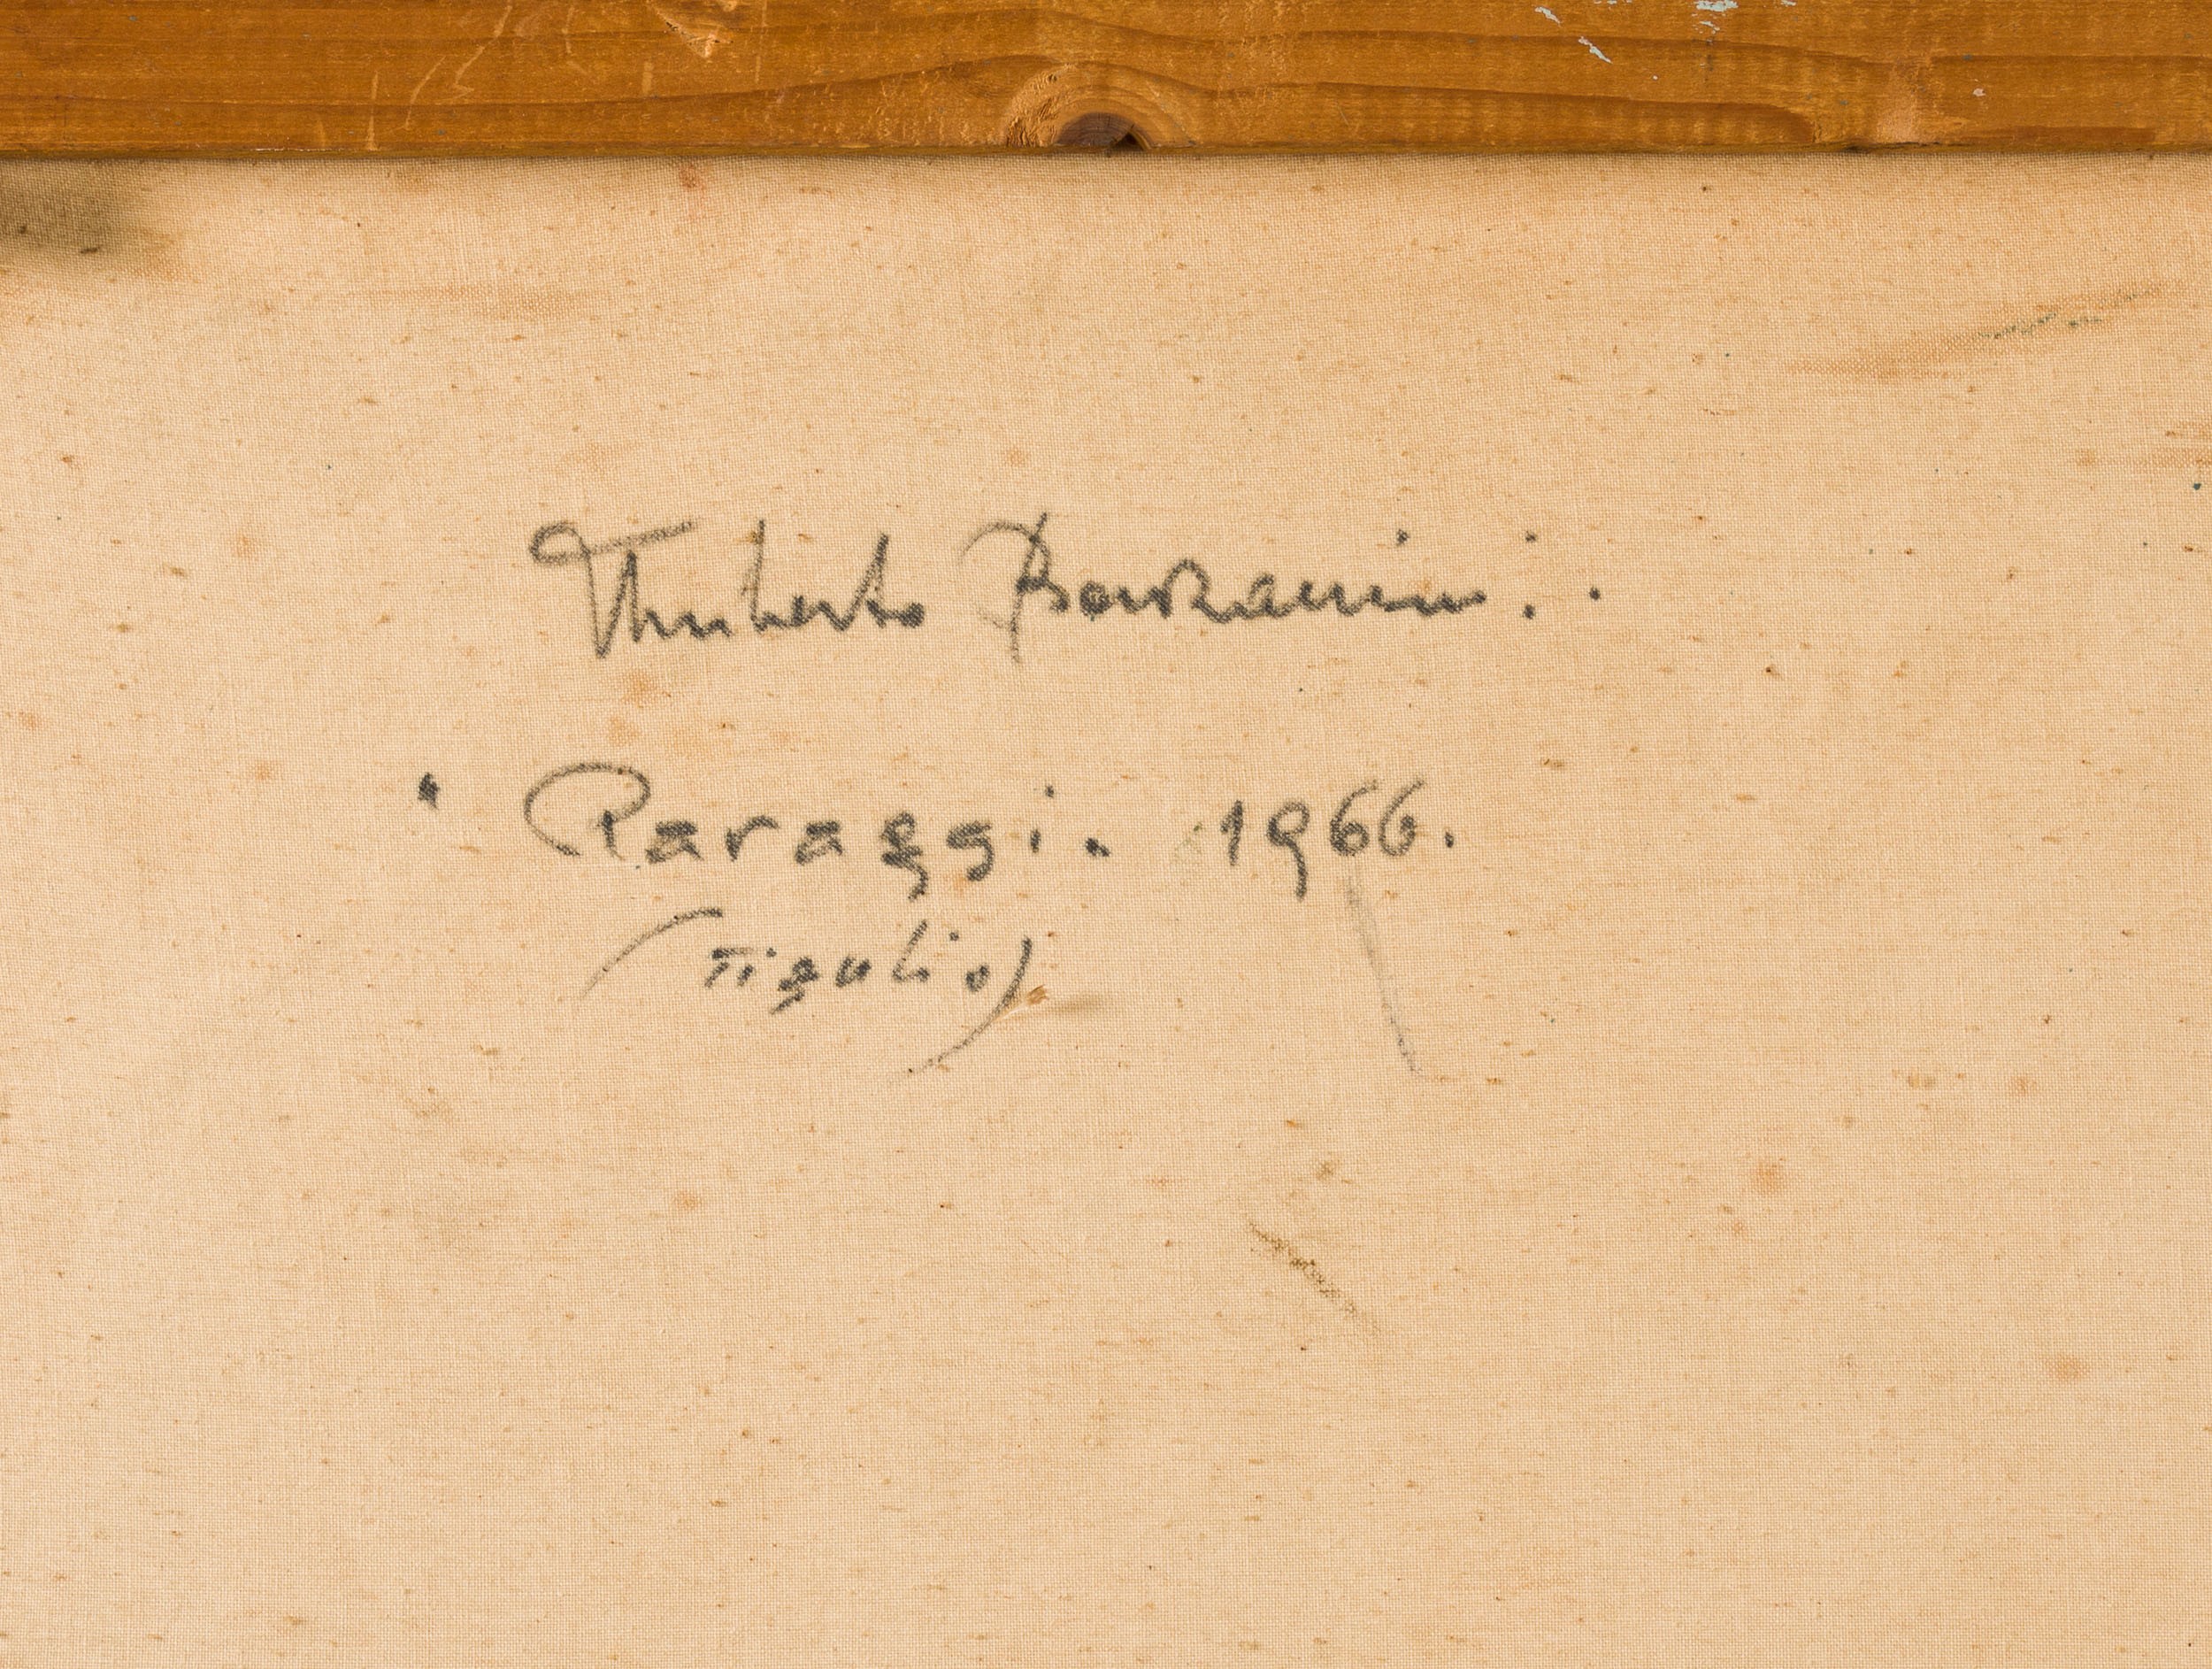 Umberto
Paraggi. 1966.
(Tigulio)